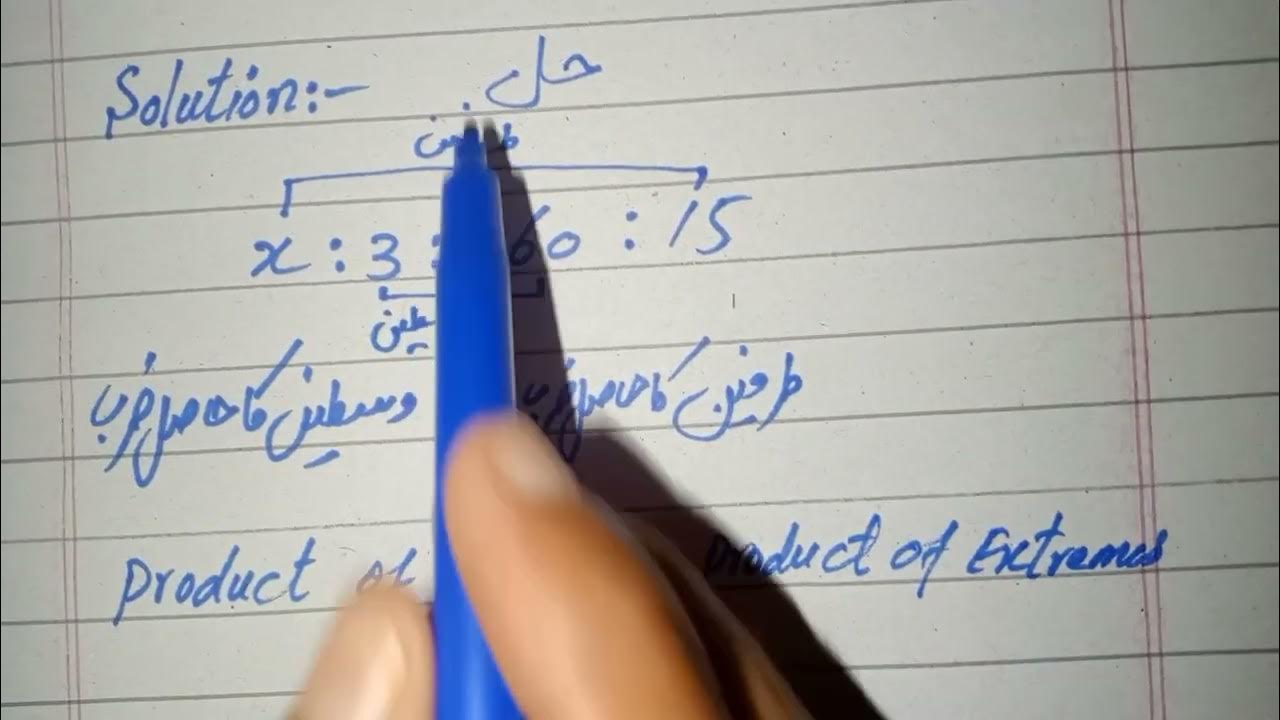 Solution:- حل
x : 3 : 60 : 15
طرفین کا حاصل ضرب وسطین کا حاصل ضرب
Product of Product of Extremes